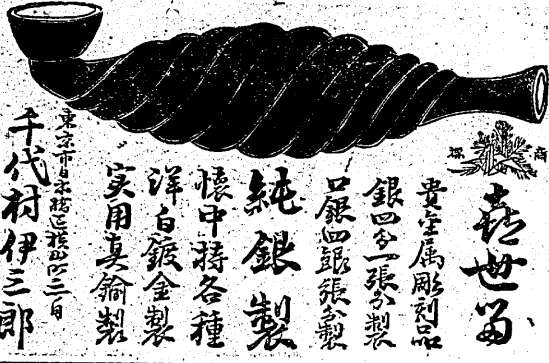 商標
喜世留
貴金属彫刻品
銀四分一張分製
口銀四銀張分製
純銀製
懐中持各種
洋白鍍金製
実用真鍮製
東京市日本橋区横山町二ノ一目
千代村伊三郎